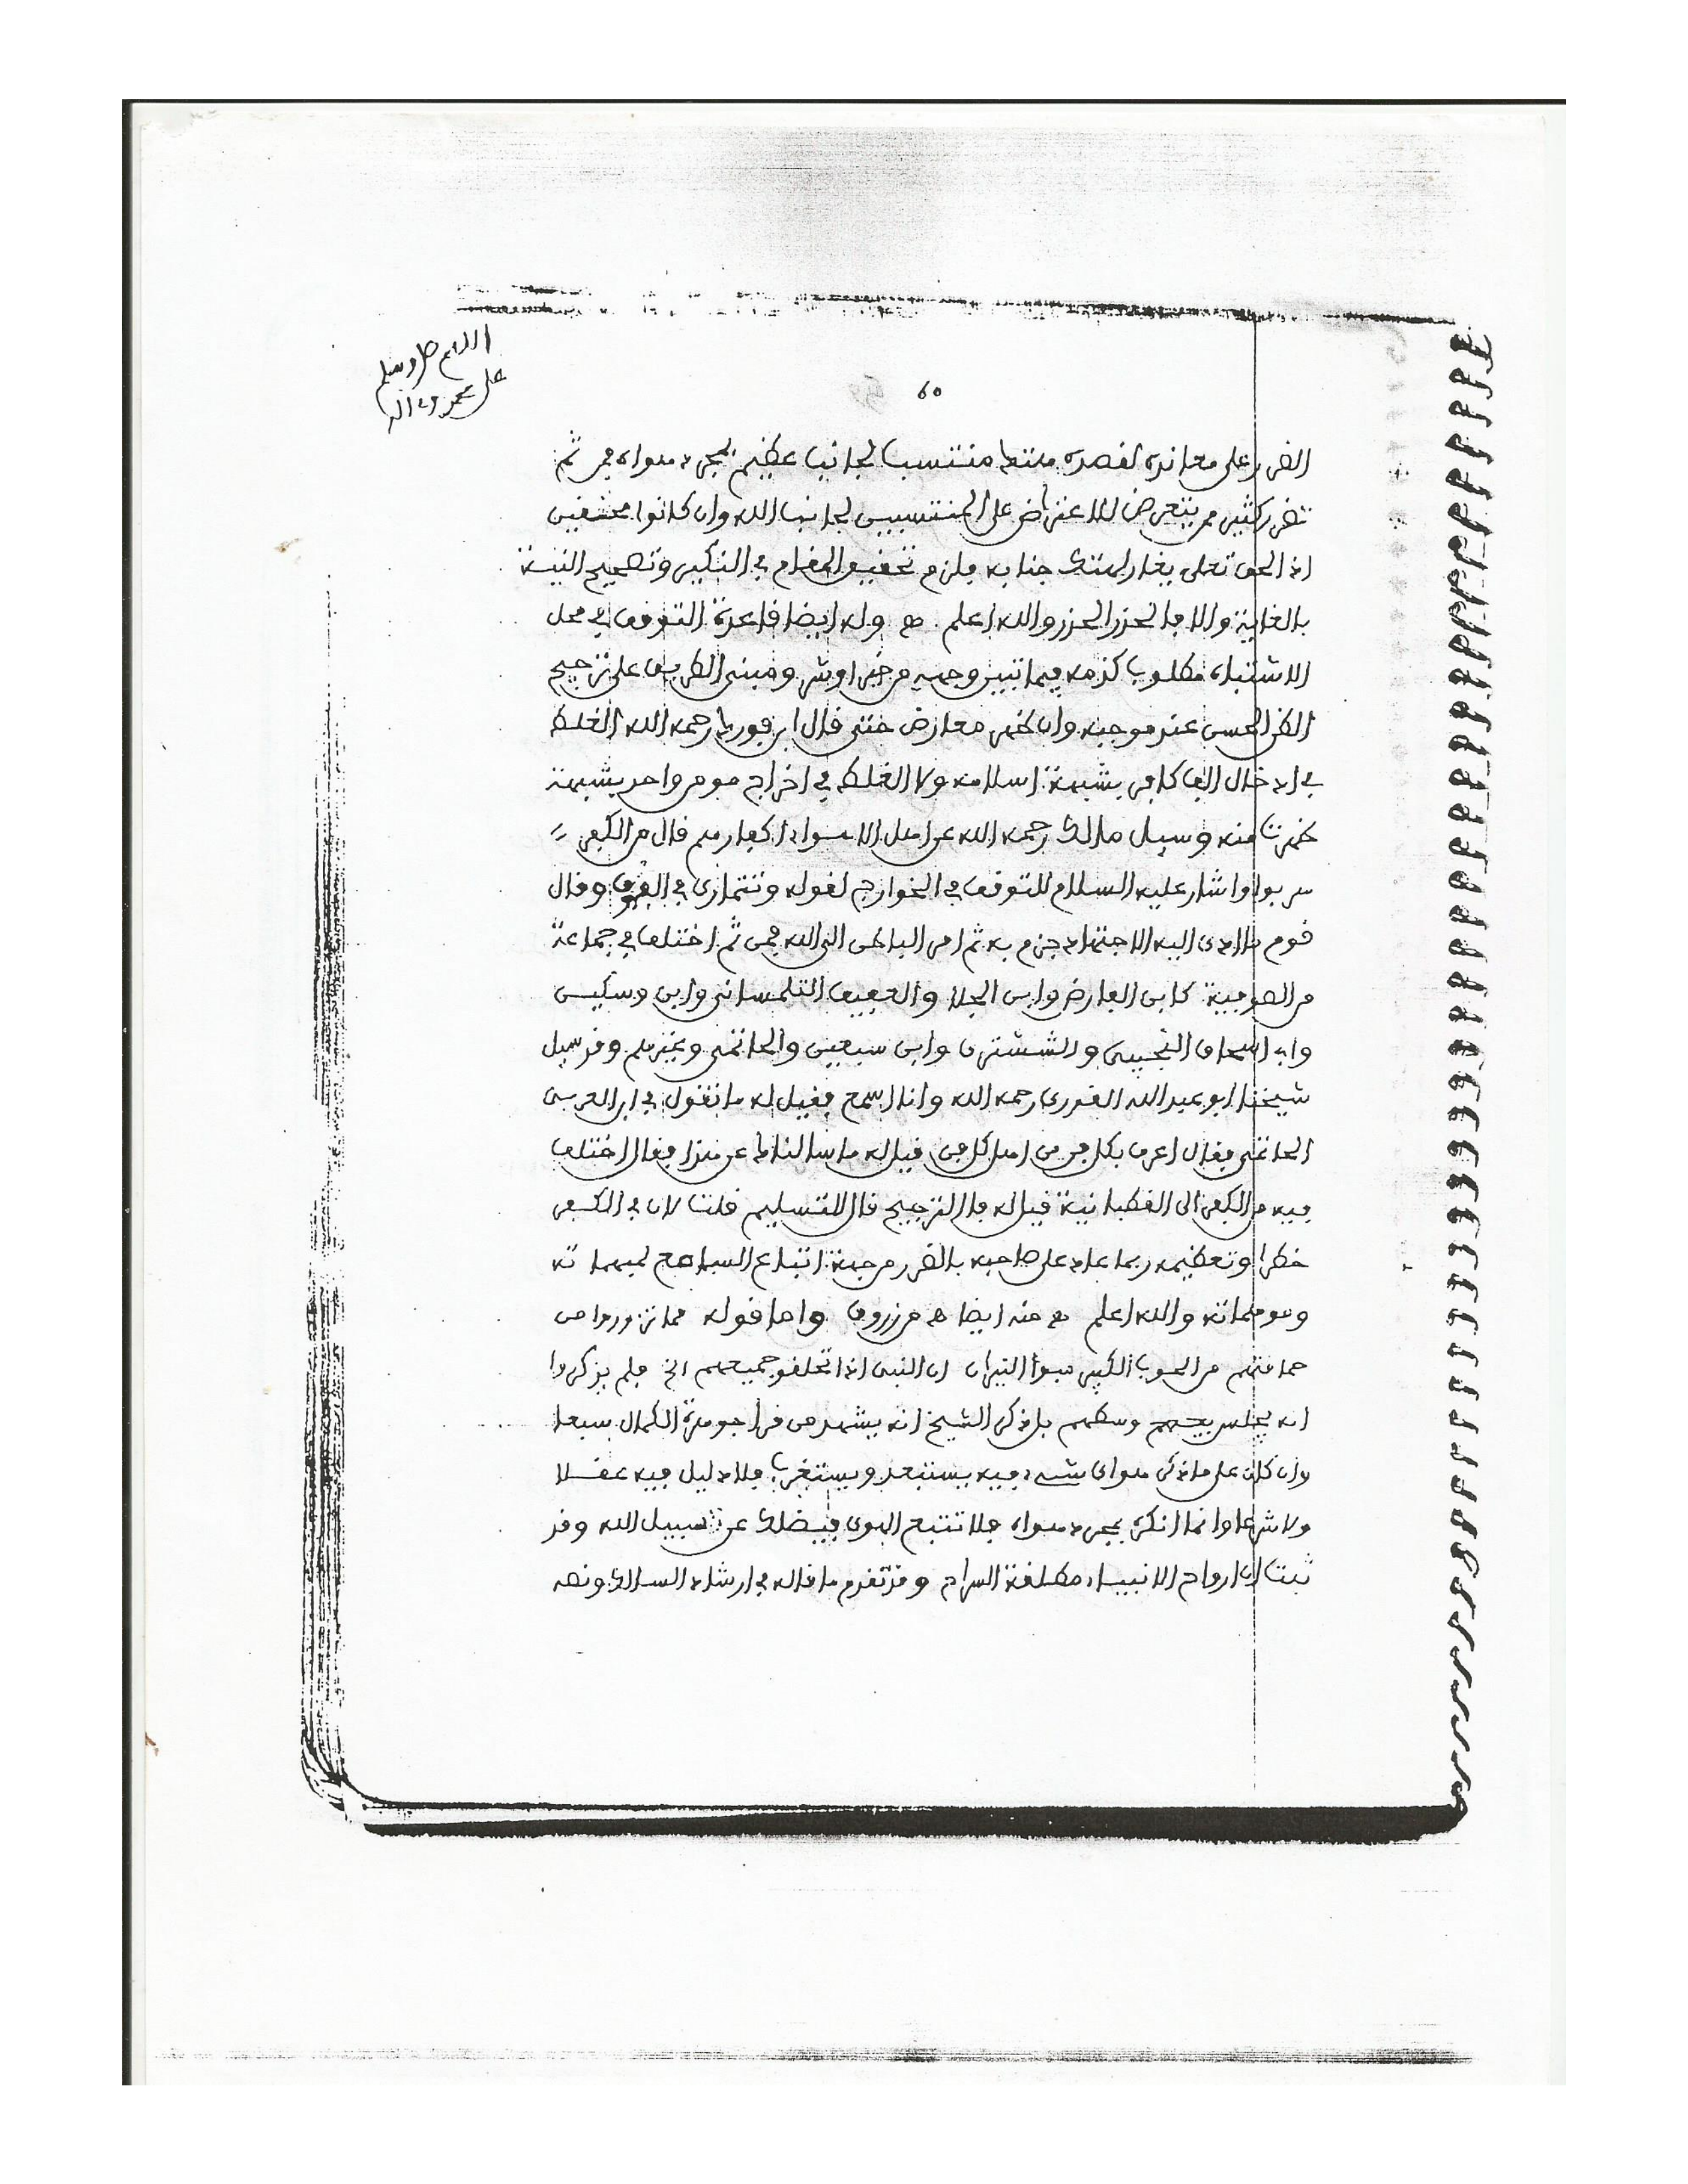 اللهم صل وسلم
على محمد وءاله
60
الضرر على معاندة لقصده هتك منتسبا لجانب عظيم بمجرد هواه فمن ثم
تضرر كثير ممن يتعرض للاعتراض على المنتسبين لجانب الله وان كانوا محقين
اذ الحق تعلى يغار لهتك جنابه فلزم تحقيق المقام في النكير وتصحيح النية
بالغاية والا فالحذر الحذر والله اعلم هـ وله ايضا قاعدة التوقف في محل
الاشتباه مطلوب كذمه فيما تبين وجهه من خير او شر ومبنى الطريق على ترجيح
الظن الحسن عند موجبه وان ظهر معارض حتى قال ابن فورك رحمه الله الغلط
في ادخال الف كافر بشبهة اسلامه ولا الغلط في اخراج مومن واحد بشبهة
ظهرت منه وسيل مالك رحمه الله عن اهل الاهواء اكفار هم قال من الكفر
هربوا واشار عليه السلام للتوقف في الخوارج لقوله وتتمارى في الفوق وقال
قوم ما ادى اليه الاجتهاد جزم به ثم امر الباطن الى الله فمن ثم اختلف في جماعة
من الصوفية كابن الفارض وابن الجلا والعفيف التلمساني وابن ذسكين
وابي اسحاق التجيبي والششتري وابن سبعين والحاتمي وغيرهم وقد سيل
شيخنا ابو عبد الله القوري رحمه الله وانا اسمع فقيل له ما تقول في ابن العربي
الحاتمي فقال اعرف بكل فن من اهل كل فن قيل له ما سالناك عن هذا فقال اختلف
فيه من الكفر الى القطبانية قيل له فما الترجيح قال التسليم قلت لان في الكفر
خطرا وتعظيمه ربما عاد على صاحبه بالضرر من جهة اتباع السامع لمبهماته
وموهماته والله اعلم هـ منه ايضا هـ من زروق واما قوله مما تزوروا من
حماقتهم من الحوب الكبير مبوأ النيران ان النبي اذا تحلقو جميعهم الخ فلم يذكروا
انه يجلس بجسمه وسطهم بل ذكر الشيخ انه يشهد من قرا جوهرة الكمال سبعا
وان كان على ما ذكر هواى شيء فيه يستبعد ويستغرب فلا دليل فيه عقلا
ولا شرعا وانما انكره بمجرد هواه فلا تتبع الهوى فيضلك عن سبيل الله وقد
ثبت ان ارواح الانبياء مطلقة السراح وقد تقدم ما قاله في ارشاد السالك ونصه